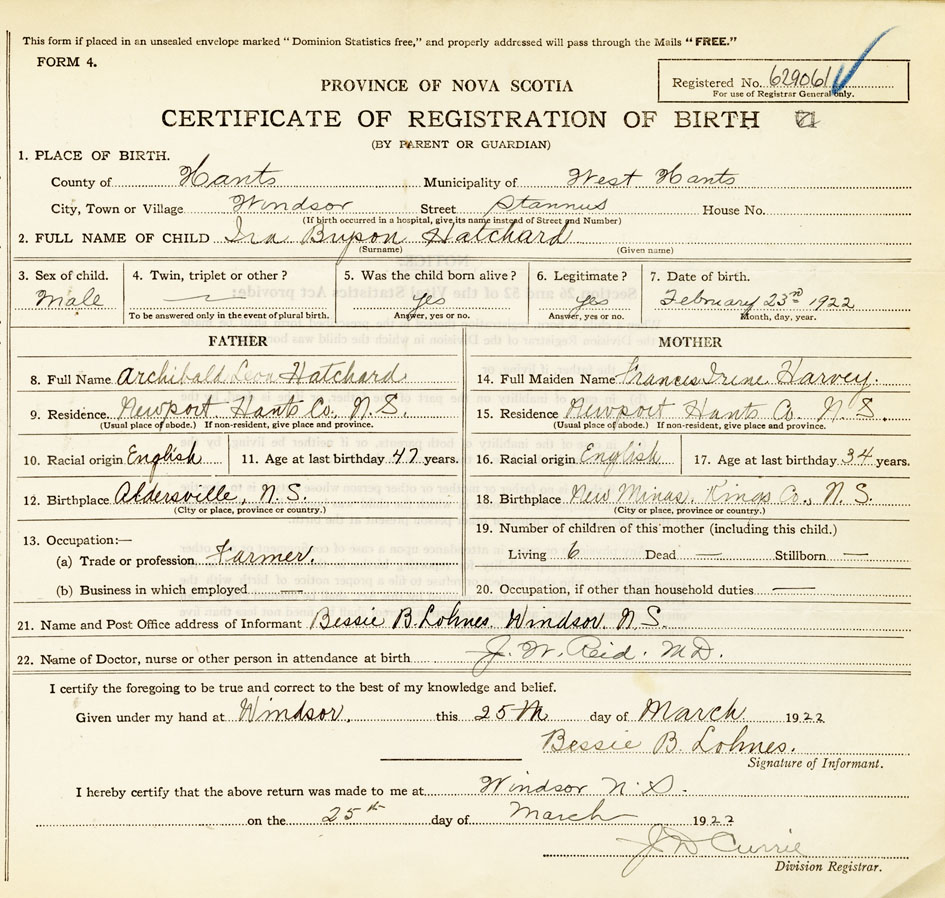 This form if placed in an unsealed envelope marked "Dominion Statistics free," and properly addressed will pass through the Mails "FREE."
FORM 4.
Registered No. 629061
For use of Registrar General only.
PROVINCE OF NOVA SCOTIA
CERTIFICATE OF REGISTRATION OF BIRTH
(BY PARENT OR GUARDIAN)
1. PLACE OF BIRTH.
County of Hants Municipality of West Hants
City, Town or Village Windsor Street Stannus House No.
(If birth occurred in a hospital, give its name instead of Street and Number)
2. FULL NAME OF CHILD Ira Bryson Hatchard
(Surname) (Given name)
3. Sex of child. 4. Twin, triplet or other? 5. Was the child born alive? 6. Legitimate? 7. Date of birth.
Male — yes yes February 23rd 1922
To be answered only in the event of plural birth. Answer, yes or no. Answer, yes or no. Month, day, year.
FATHER MOTHER
8. Full Name Archibald Leon Hatchard 14. Full Maiden Name Frances Irene Harvey.
9. Residence. Newport Hants Co. N.S. 15. Residence Newport Hants Co. N.S.
(Usual place of abode.) If non-resident, give place and province. (Usual place of abode.) If non-resident, give place and province.
10. Racial origin English 11. Age at last birthday 47 years. 16. Racial origin English 17. Age at last birthday 34 years.
12. Birthplace Aldersville, N.S. 18. Birthplace New Minas, Kings Co., N.S.
(City or place, province or country.) (City or place, province or country.)
13. Occupation:— 19. Number of children of this mother (including this child.)
(a) Trade or profession Farmer. Living 6 Dead — Stillborn —
(b) Business in which employed — 20. Occupation, if other than household duties —
21. Name and Post Office address of Informant Bessie B. Lohnes. Windsor, N.S.
22. Name of Doctor, nurse or other person in attendance at birth J. W. Reid. M.D.
I certify the foregoing to be true and correct to the best of my knowledge and belief.
Given under my hand at Windsor, this 25th day of March 1922
Bessie B. Lohnes.
Signature of Informant.
I hereby certify that the above return was made to me at Windsor N.S.
on the 25th day of March 1922
J D Currie
Division Registrar.